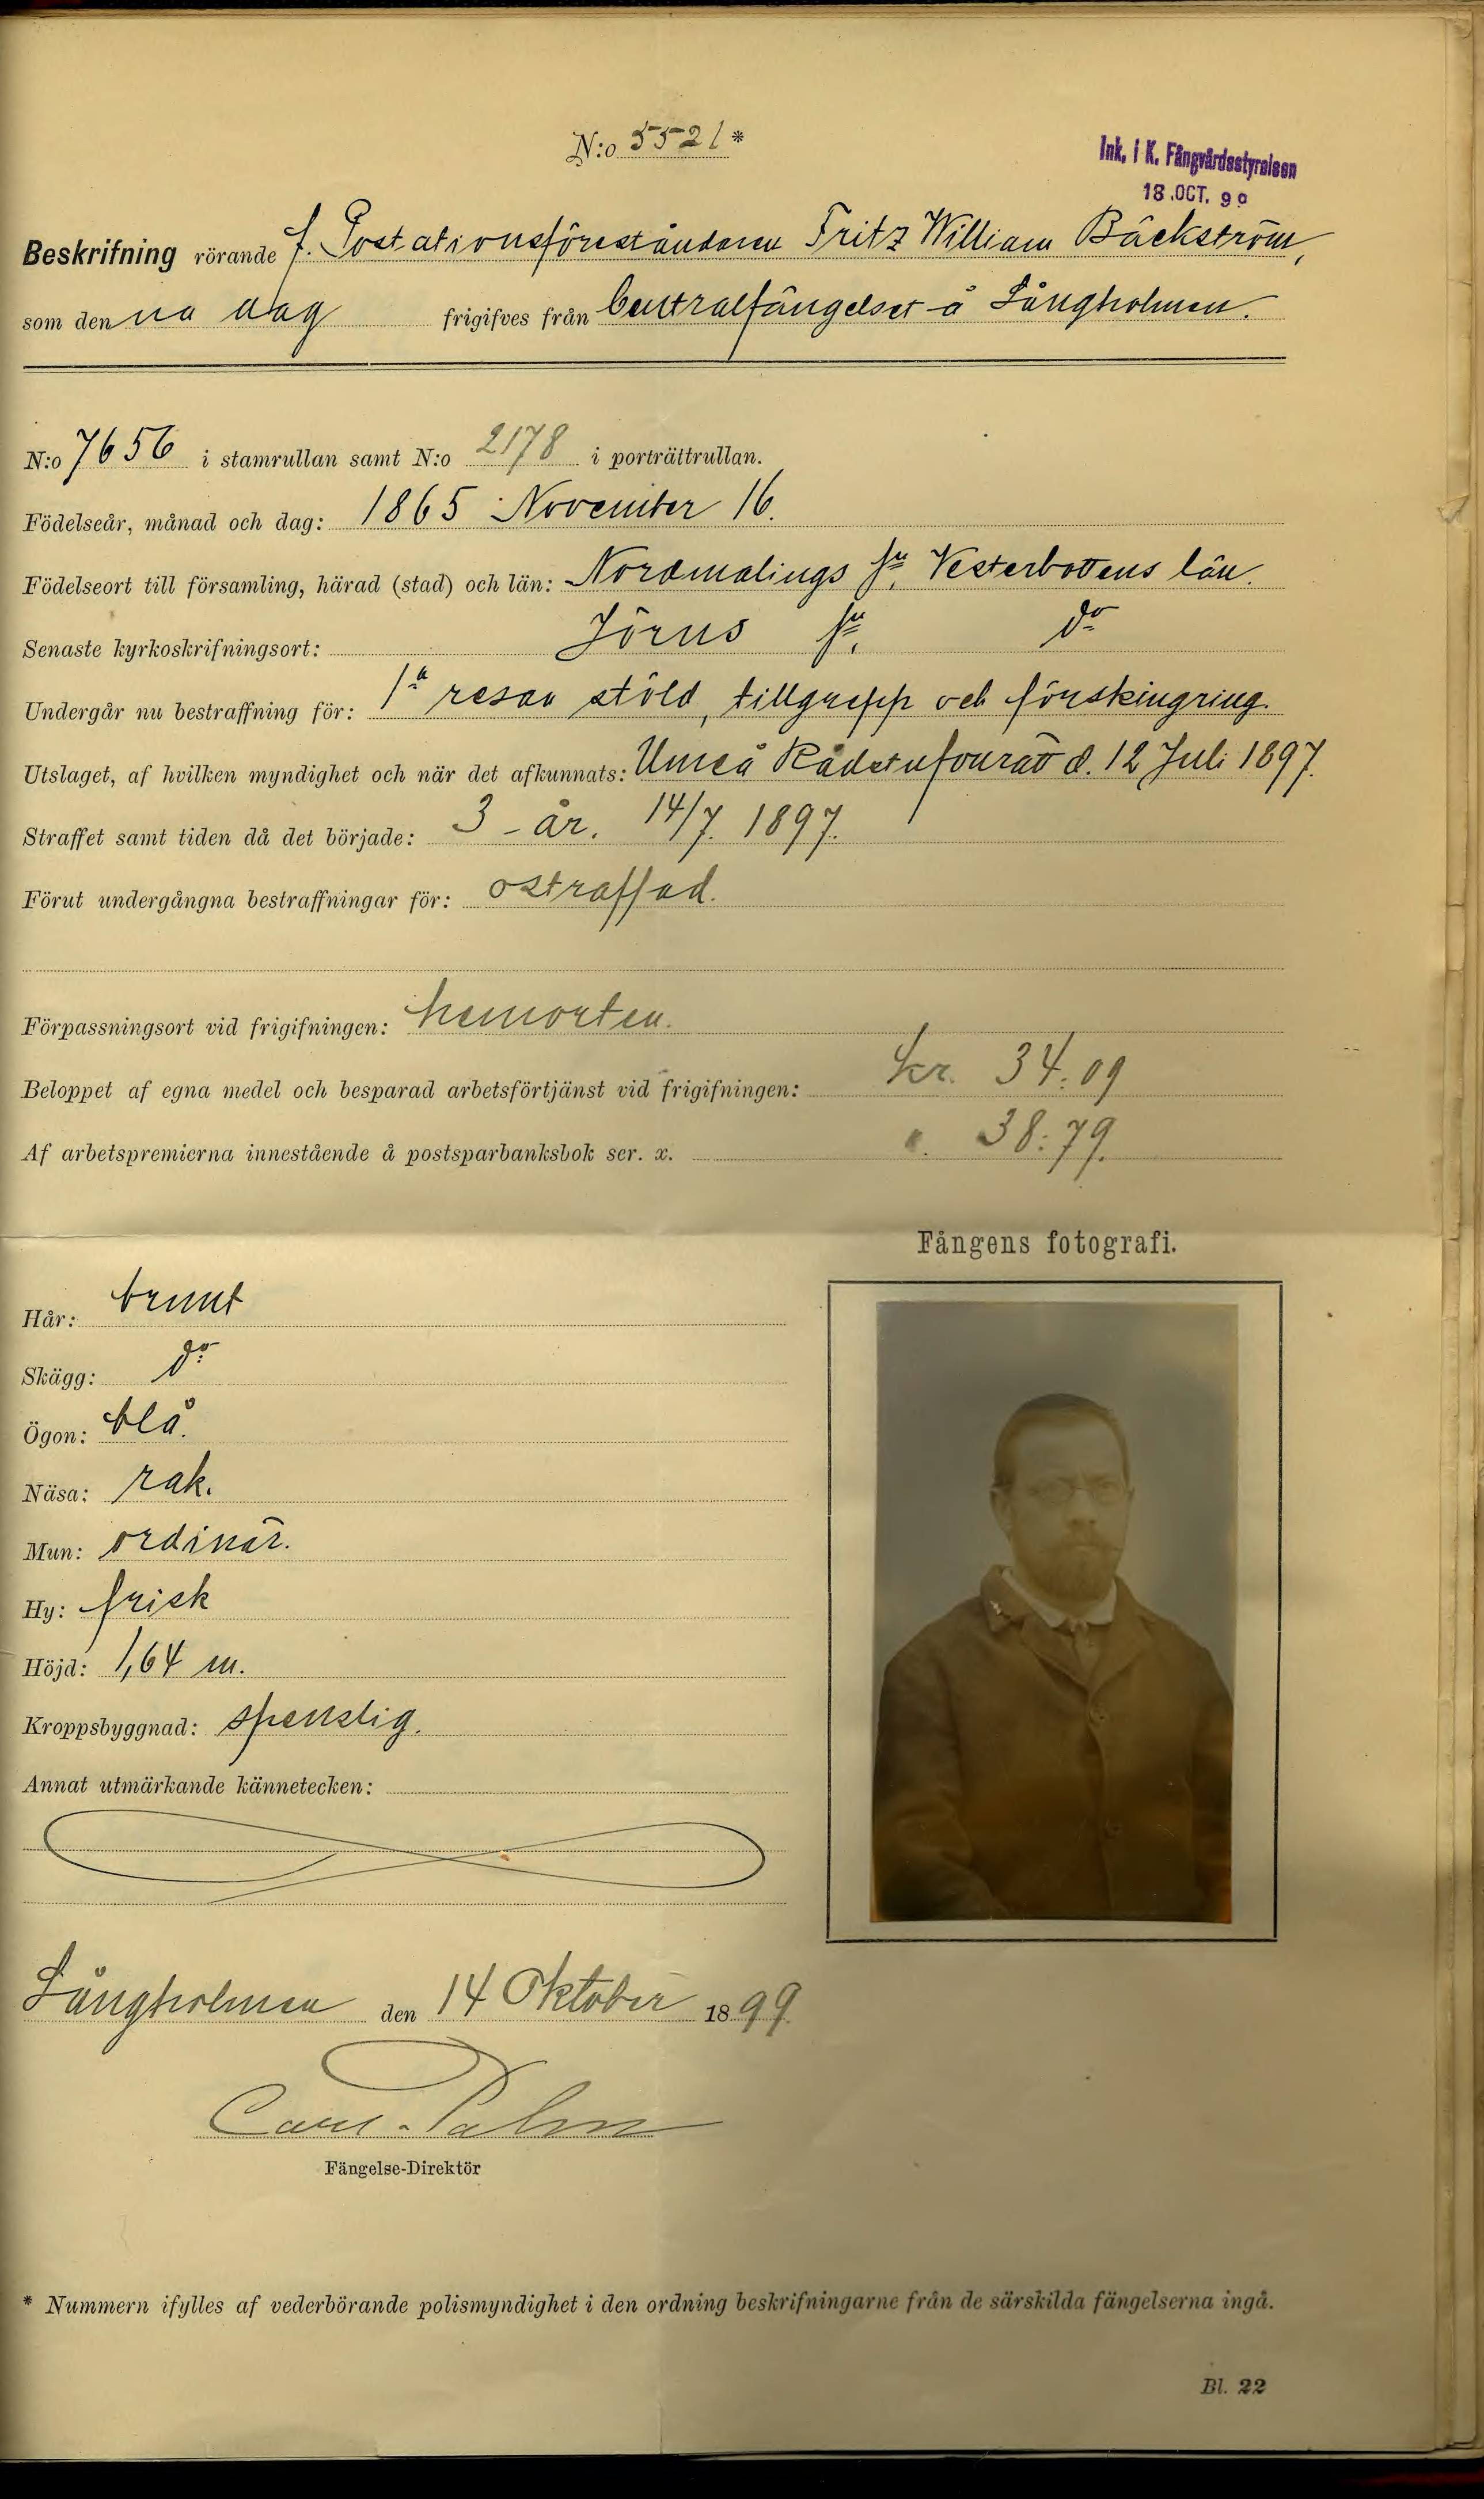 N:o 5521*
Ink. i K. Fångvårdsstyrelsen
18.OCT. 99
Beskrifning rörande f. Poststationsföreståndaren Fritz William Bäckström,
som denna dag frigifves från Centralfängelset å Långholmen.
N:o 7656 i stamrullan samt N:o 2178 i porträttrullan.
Födelseår, månad och dag: 1865 November 16.
Födelseort till församling, härad (stad) och län: Nordmalings fn, Vesterbottens län.
Senaste kyrkoskrifningsort: Jörns fn, do
Undergår nu bestraffning för: 1a resan stöld, tillgrepp och förskingring.
Utslaget, af hvilken myndighet och när det afkunnats: Umeå Rådstufvurätt d. 12 Juli 1897.
Straffet samt tiden då det började: 3 år. 14/7. 1897.
Förut undergångna bestraffningar för: ostraffad.
Förpassningsort vid frigifningen: hemorten.
Beloppet af egna medel och besparad arbetsförtjänst vid frigifningen: kr. 34:09
Af arbetspremierna innestående å postsparbanksbok ser. x. ". 38:79.
Fångens fotografi.
Hår: brunt
Skägg: do
Ögon: blå.
Näsa: rak.
Mun: ordinär.
Hy: frisk
Höjd: 1,64 m.
Kroppsbyggnad: spenslig.
Annat utmärkande kännetecken:
Långholmen den 14 Oktober 1899.
Carl Palm
Fängelse-Direktör
* Nummern ifylles af vederbörande polismyndighet i den ordning beskrifningarne från de särskilda fängelserna ingå.
Bl. 22